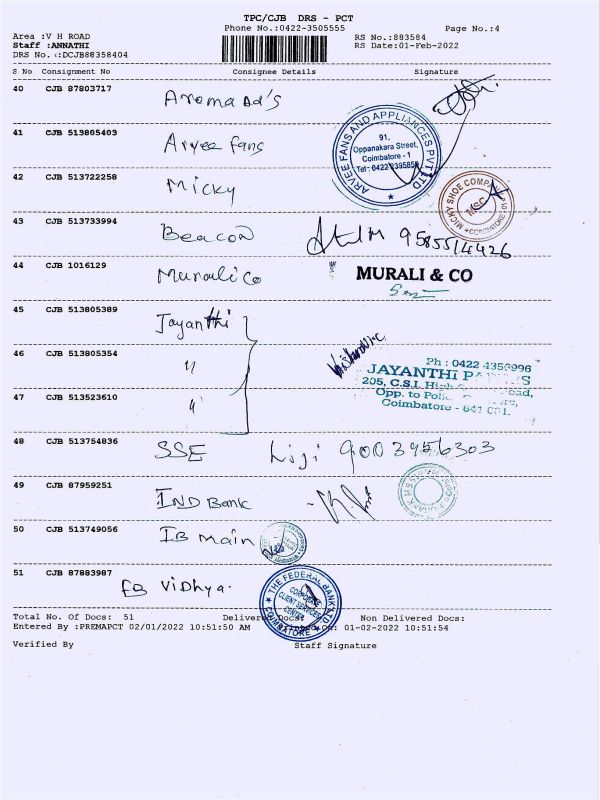 TPC/CJB DRS - PCT
Phone No.:0422-3505555
Page No.:4
Area :V H ROAD
RS No.:883584
Staff :ANNATHI
RS Date:01-Feb-2022
DRS No. :DCJB88358404
S No Consignment No Consignee Details Signature
40 CJB 87803717 Aroma Ad's
41 CJB 513805403 Arvee Fans
ARVEE FANS AND APPLIANCES PVT LTD
91,
Oppanakara Street,
Coimbatore - 1
Tel : 0422 2395858
42 CJB 513722258 Micky
MICKY SHOE COMPANY
MSC
COIMBATORE
43 CJB 513733994 Beacon 9585514426
44 CJB 1016129 Murali Co
MURALI & CO
45 CJB 513805389 Jayanthi
46 CJB 513805354 "
47 CJB 513523610 "
Ph : 0422 4356996
JAYANTHI
205, C.S.I.
Opp. to
Coimbatore - 641 001.
48 CJB 513754836 SSE Liji 9003956303
49 CJB 87959251 IND Bank
50 CJB 513749056 IB main
51 CJB 87883987 FB Vidhya.
THE FEDERAL BANK LTD
CORPORATE
CLIENT SERVICES
CENTRE
COIMBATORE
Total No. Of Docs: 51 Delivered Docs: Non Delivered Docs:
Entered By :PREMAPCT 02/01/2022 10:51:50 AM Printed On: 01-02-2022 10:51:54
Verified By Staff Signature